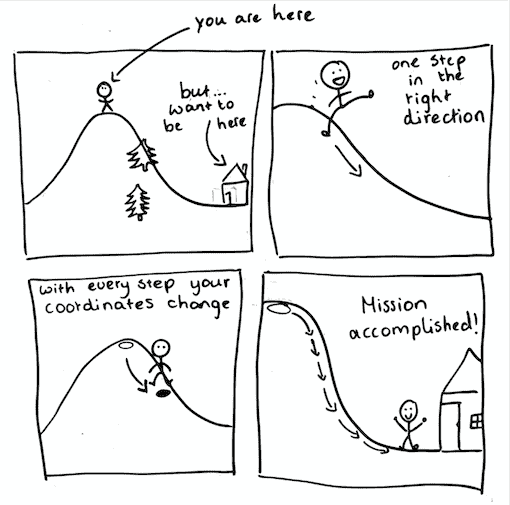 you are here
but...
want to
be here
one step
in the
right
direction
with every step your
coordinates change
Mission
accomplished!